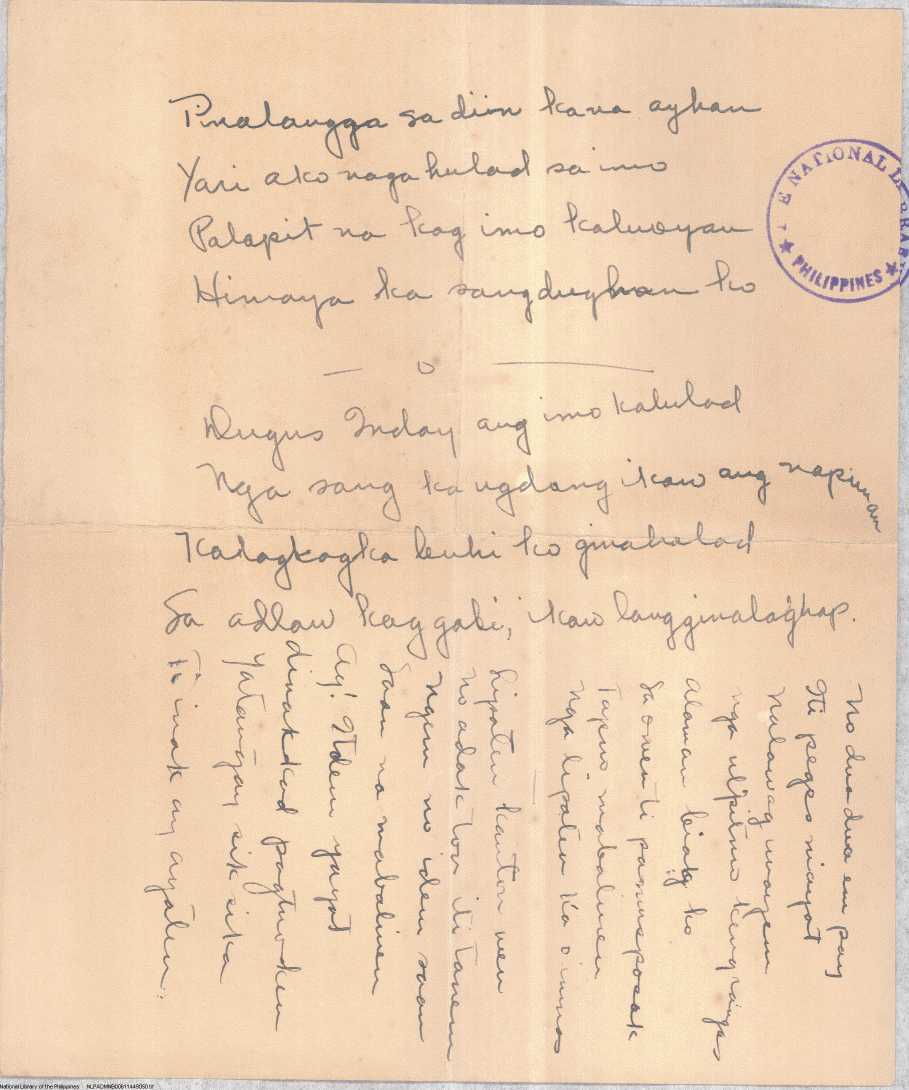 Pinalangga sa diin kana ayhan
Yari ako naga hulad sa imo
Palapit na kag imo kaluoyan
Himaya ka sang dughan ko
— o —
Dugus Inday ang imo kalulad
Nga sang ka ugdang ikaw ang napunan
Kalagkagka luhi ko ginahalad
Sa adlaw kag gabi, ikaw lang ginalaghap.
No dua dua em pay
Iti pegges niayat
Nalawag unayen
nga ulpitmo kengranggas
alaman biag ko
Sa onen ti panusposak
Tapno mabalinen
Nga lipaten ka o imnas
Lipaten kanton wen
No adak ton iti tanem
Ngem no iden saan
Saan na mabalinen
Ay! Itden yayat
dinakkad pagtuoken
Yatangay sik sika
Ti inak ay ayaten.
THE NATIONAL LIBRARY
PHILIPPINES
National Library of the Philippines